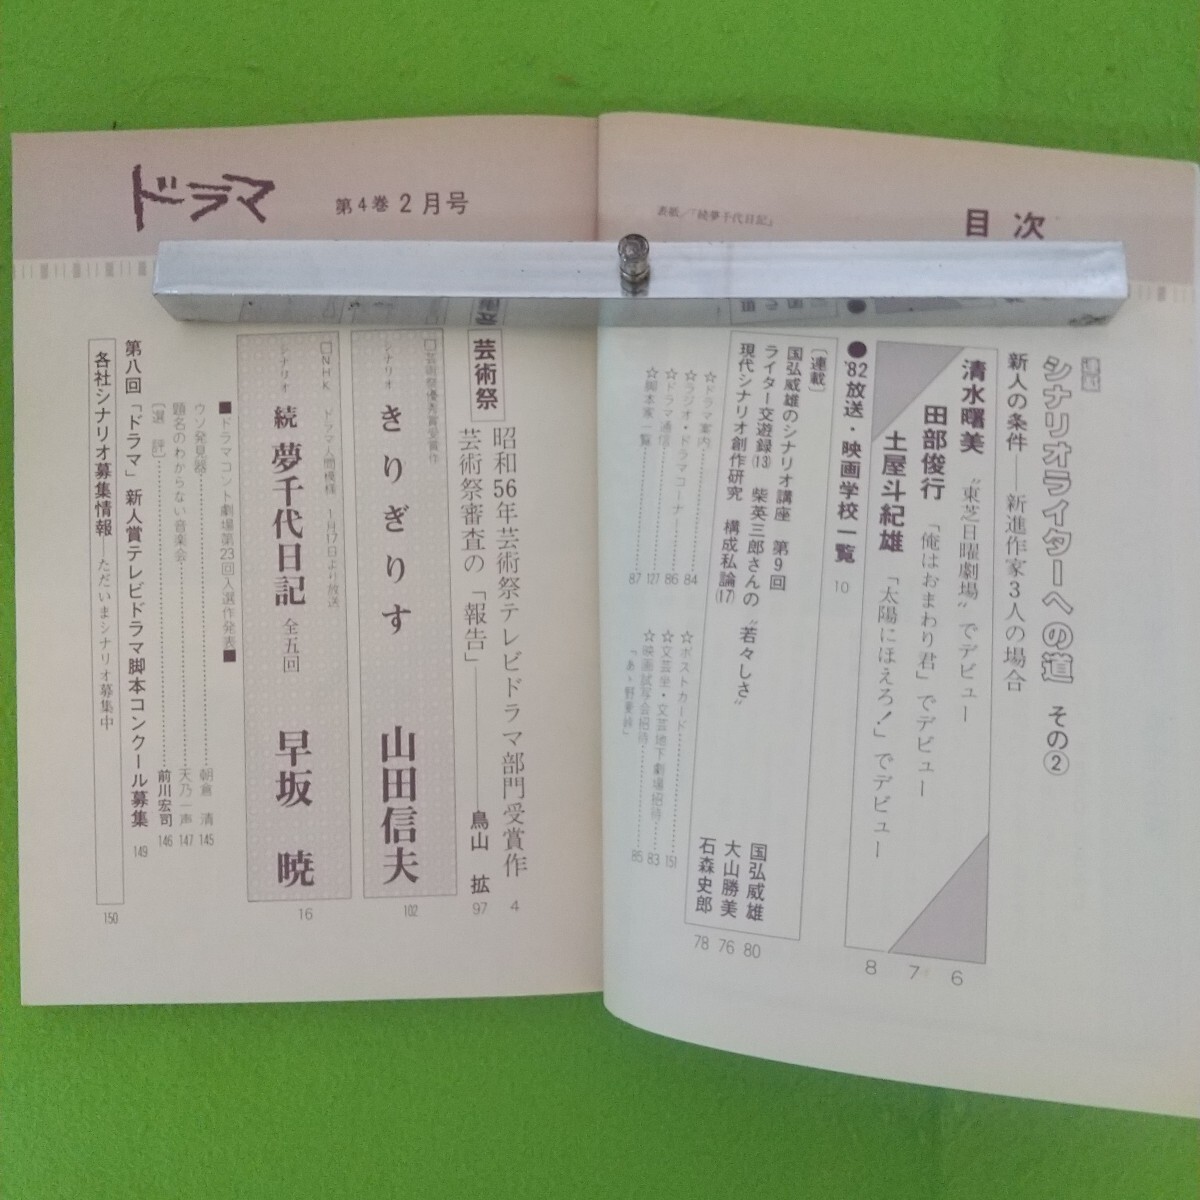 表紙／「続夢千代日記」
目次
連載
シナリオライターへの道 その②
新人の条件――新進作家3人の場合
清水曙美 “東芝日曜劇場”でデビュー 6
田部俊行 「俺はおまわり君」でデビュー 7
土屋斗紀雄 「太陽にほえろ!」でデビュー 8
●'82放送・映画学校一覧 10
〔連載〕
国弘威雄のシナリオ講座 第9回 国弘威雄 80
ライター交遊録(13) 柴英三郎さんの“若々しさ” 大山勝美 76
現代シナリオ創作研究 構成私論(17) 石森史郎 78
☆ドラマ案内 84
☆ラジオ・ドラマコーナー 86
☆ドラマ通信 127
☆脚本家一覧 87
☆ポストカード 151
☆文芸坐・文芸地下劇場招待 83
☆映画試写会招待 85
「あゝ野麦峠」
ドラマ
第4巻 2月号
芸術祭
昭和56年芸術祭テレビドラマ部門受賞作 4
芸術祭審査の「報告」――鳥山 拡 97
□芸術祭優秀賞受賞作
シナリオ きりぎりす 山田信夫 102
□NHK ドラマ人間模様 1月17日より放送
シナリオ 続 夢千代日記 全五回 早坂 暁 16
■ドラマコント劇場第23回入選作発表■
ウソ発見器 朝倉 清 145
題名のわからない音楽会 天乃一声 147
〔選評〕 前川宏司 146
第八回「ドラマ」新人賞テレビドラマ脚本コンクール募集 149
各社シナリオ募集情報――ただいまシナリオ募集中 150